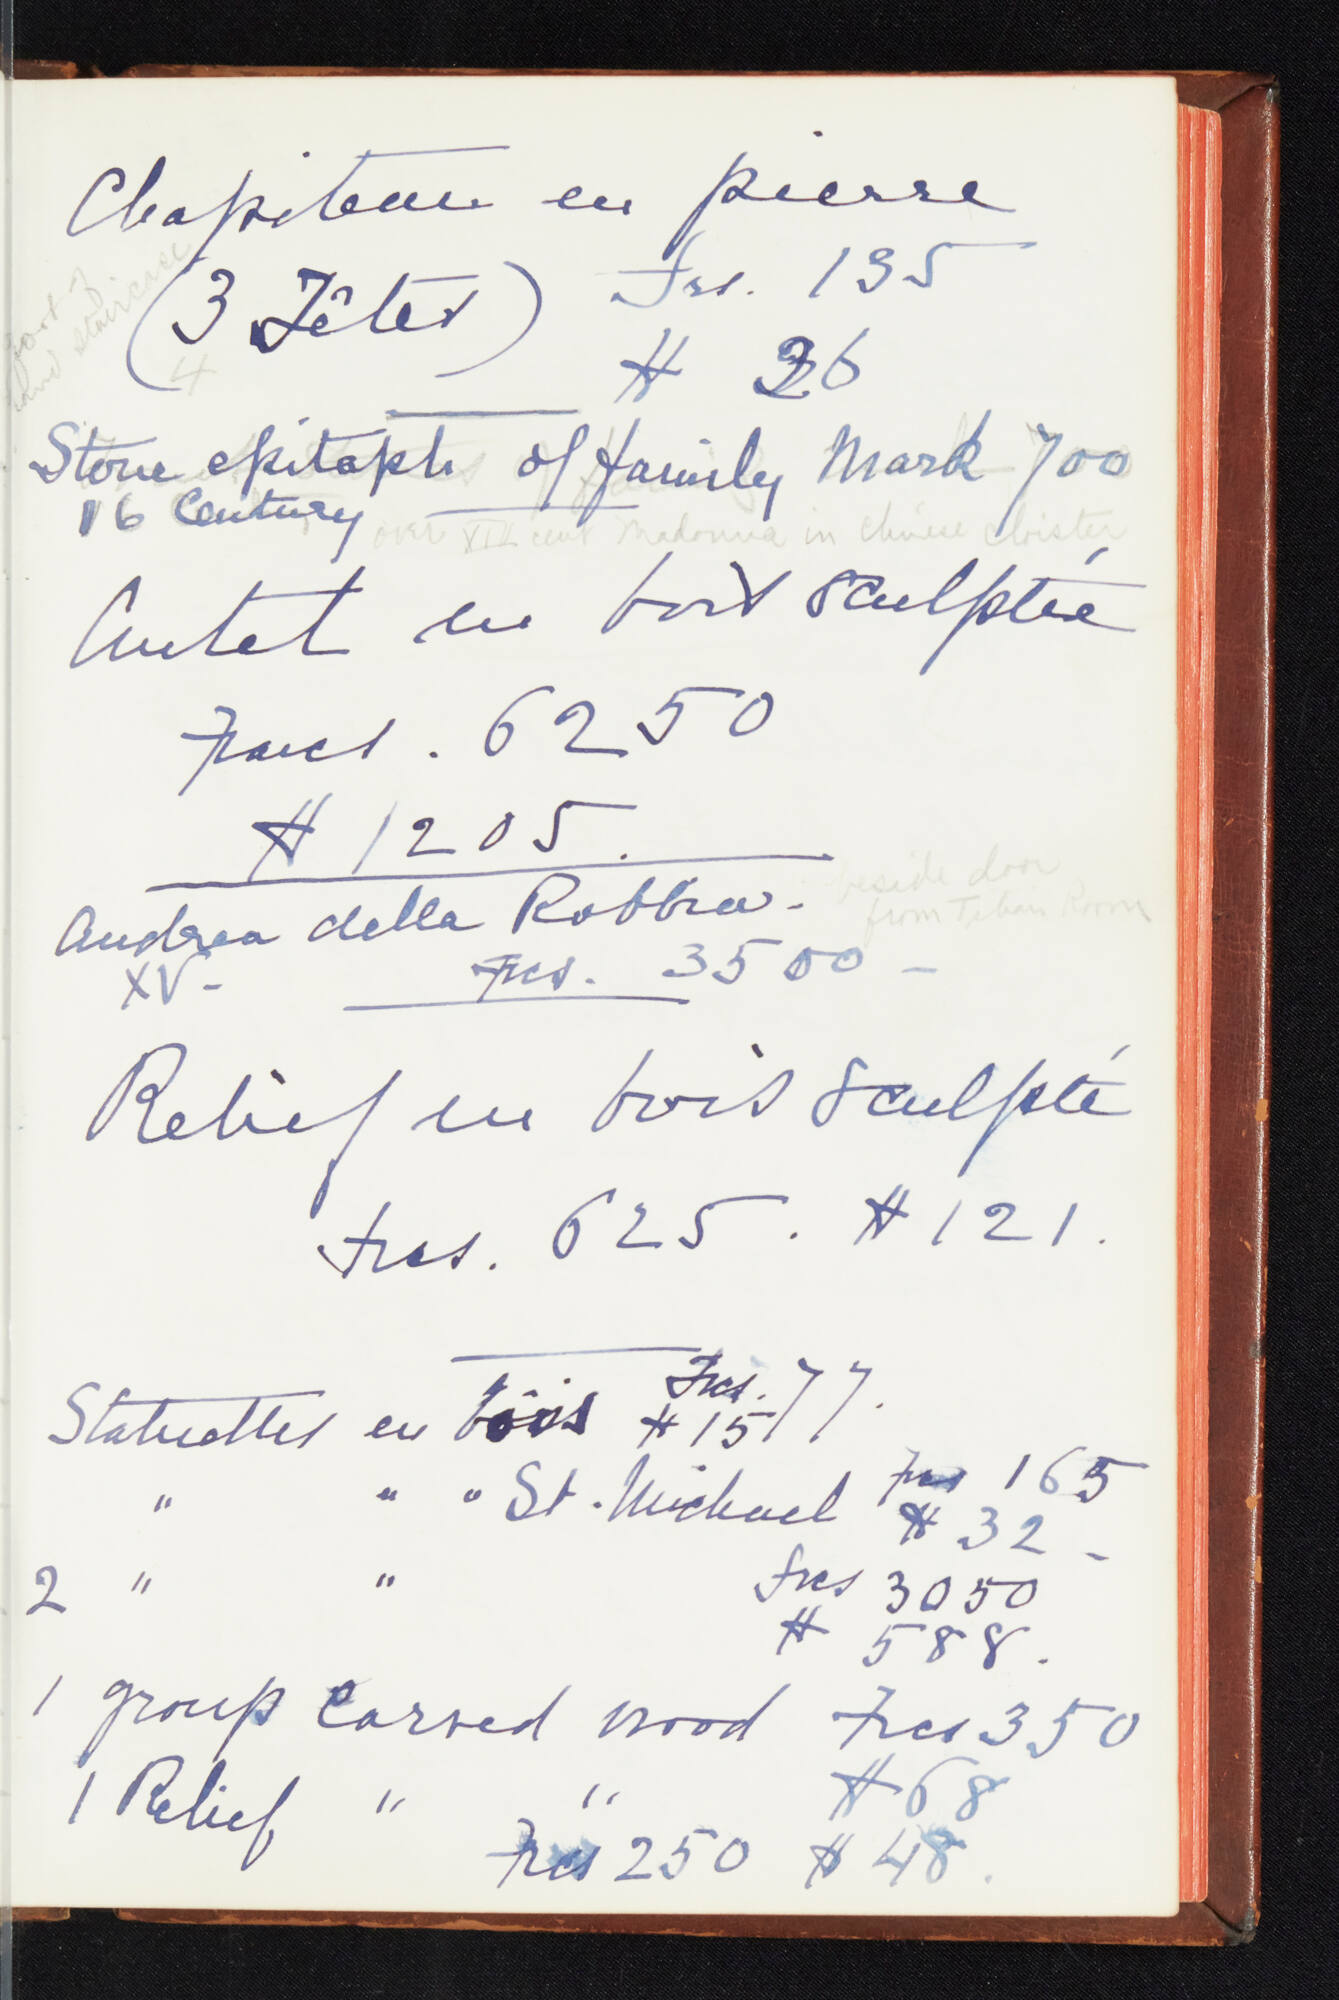 Chapiteau en pierre
(3 Têtes) Frs. 135
foot of
staircase
4
$ 26
Stone epitaph of family Mark 700
16 Century
over XIII cent Madonna in Chinese cloister
Autel en bois sculptée
Francs . 6250
$ 1205.
beside door
from Titian Room
Andrea della Robbia -
XV - Frcs. 3500 -
Relief en bois sculpté
Frcs. 625. $ 121.
Statuettes en bois Frcs. 77.
$ 15
" " " St. Michael Frcs 165
$ 32 -
2 " " Frcs 3050
$ 588.
1 group carved wood Frcs 350
$ 68
1 Relief " "
Frcs 250 $ 48.